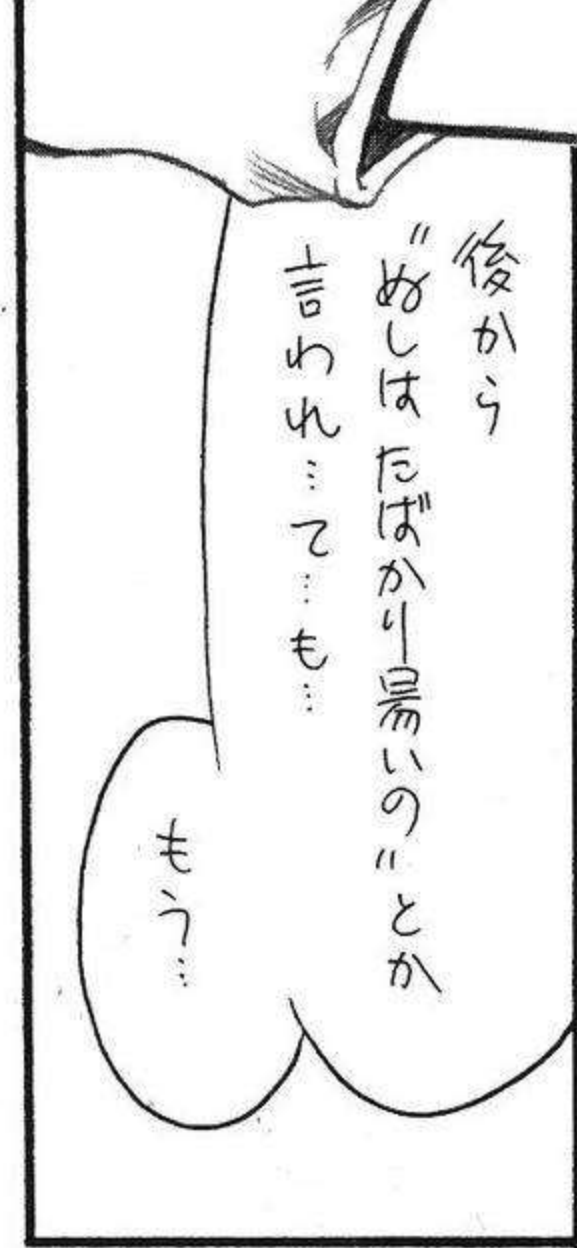 後から
"ぬしは たばかり易いの"とか
言われ…て…も…
もう…